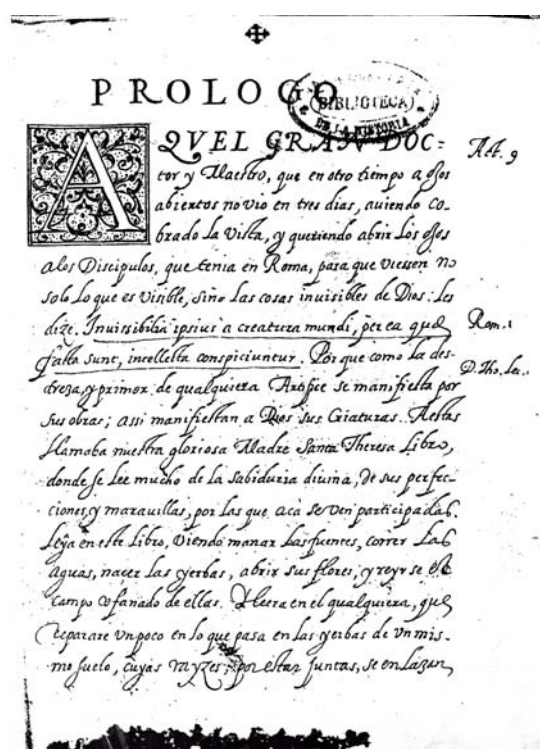 PROLOGO
BIBLIOTECA
DE LA HISTORIA
AQVEL GRAN DOC-
Act. 9
tor y Maestro, que en otro tiempo a ojos
abiertos no vio en tres dias, auiendo co-
brado la vista, y queriendo abrir los ojos
alos Discipulos, que tenia en Roma, para que viessen no
solo lo que es visible, sino las cosas inuisibles de Dios: les
dize. Inuissibilia ipsius à creatura mundi, per ea quę
Rom. 1
facta sunt, intellecta conspiciuntur. Porque como la des-
D. Tho. lec.
treza, y primor de qualquiera Artifice se manifiesta por
sus obras; assi manifiestan a Dios sus Criaturas. A estas
llamaba nuestra gloriosa Madre Santa Theresa Libro,
donde se lee mucho de la sabiduria diuina, de sus perfec-
ciones, y marauillas, por las que aca se ven participadas.
Leÿa en este Libro, viendo manar las fuentes, correr las
aguas, nacer las yerbas, abrir sus flores, y reyrse el
campo vfanado de ellas. Y leera en el qualquiera, que
reparare vn poco en lo que pasa en las yerbas de vn mis-
mo suelo, cuyas rayzes, por estar juntas, se enlazan